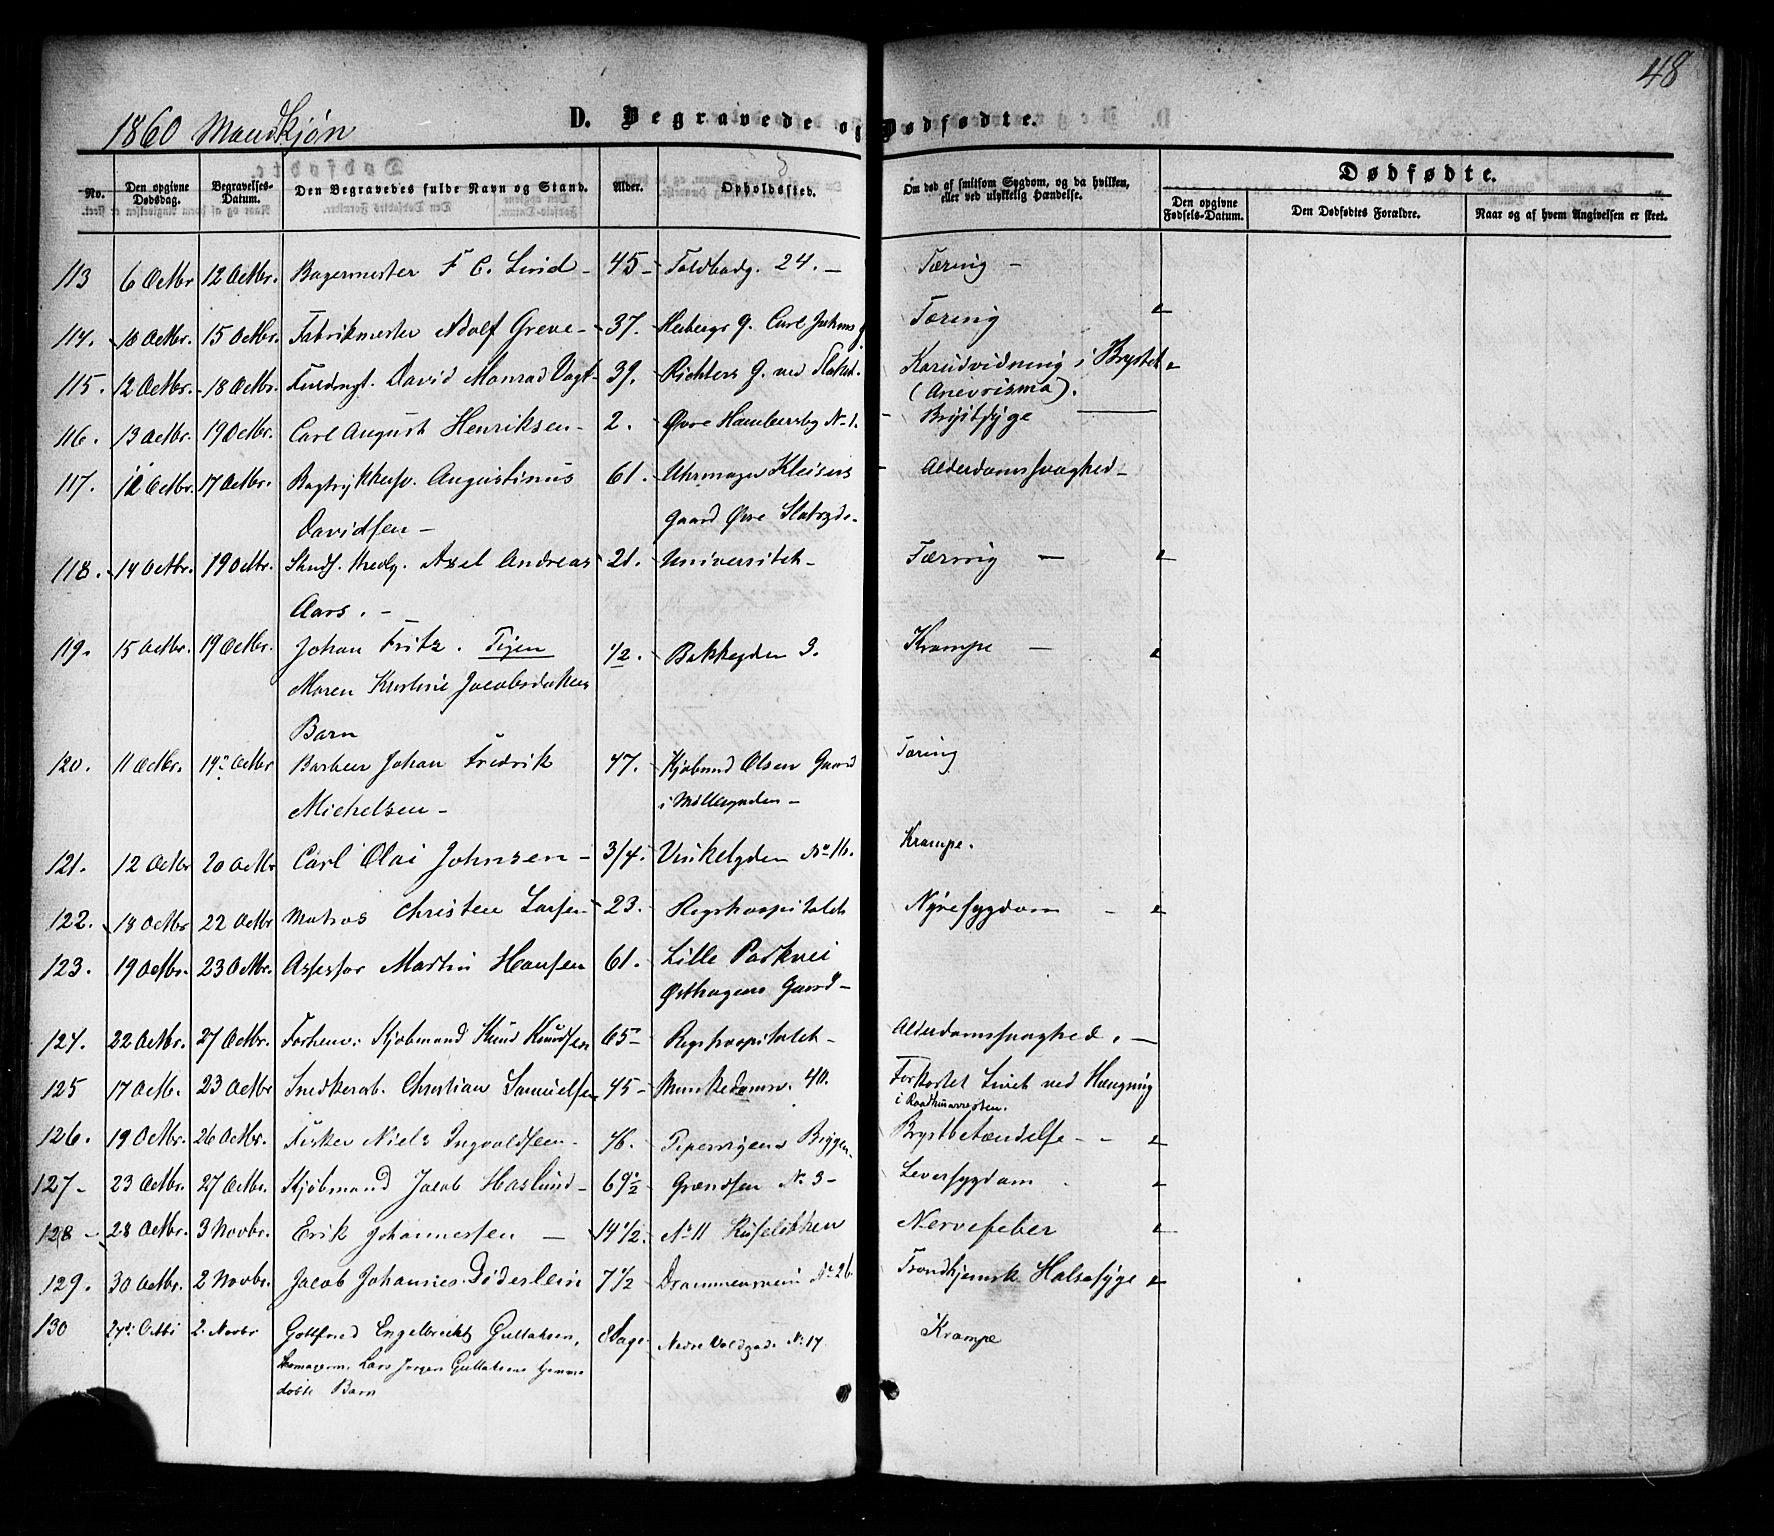 48
1860 Mandkjøn
D. Begravede og Dødfødte.
No. Den opgivne Dødsdag. Begravelses-Datum. Den Begravedes fulde Navn og Stand. Alder. Opholdssted. Om død af smitsom Sygdom, og da hvilken, eller ved ulykkelig Hændelse. Dødfødte.
Den opgivne Fødsels-Datum. Den Dødfødtes Forældre. Naar og af hvem Angivelsen er skeet.
113 6 Octbr 12 Octbr. Bagermester F C. Lind - 45 - Toldbodg. 24. - Tæring -
114. 10 Octbr. 15 Octbr. Fabrikmester Adolf Greve - 37. Carl Johans g Tæring
115. 12 Octbr. 18 Octbr. David Monrad Vogt 39. Richters G. ved Slottet. Karudvidning i Brystet
(Anevrisma).
116. 13 Octbr. 19 Octbr. Carl August Henriksen - 2. Øvre Hamborby N-1. Brystsyge
117. 12 Octbr. 17 Octbr. Augustinus 61. Uhrmager Kleisers Alderdomssvaghed -
Davidsen - Gaard Øvre Slotsgde.
118. 14 Octbr. 19 Octbr. Axel Andreas 21. Universitet - Tæring -
Aars. -
119. 15 Octbr. 19 Octbr. Johan Fritz. Pigen 1/2. Bakkegden 3. Krampe -
Maren Kristine Jacobsdatters
Barn
120. 11 Octbr. 19 Octbr Barbeer Johan Fredrik 47. Kjøbmd Olsen Gaard Tæring
Michelsen - i Møllergaden -
121. 12 Octbr 20 Octbr Carl Olai Johnsen - 3/4. Vinkelgden No 16. Krampe.
122. 18 Octbr 22 Octbr Matros Christen Larsen 23. Rigshospitalet Nyresygdom -
123. 19 Octbr. 23 Octbr. Assessor Martin Hansen 61. Lille Parkvei
Østhagens Gaard -
124. 22 Octbr. 27 Octbr. Forhenv. Kjøbmand Knud Knudsen 65 - Rigshospitalet - Alderdomssvaghed. -
125 17 Octb. 23 Octbr Snedkerarb. Christian Samuelsen 45 - Munkedamsv. 40. Forkortet Livet ved Hængning
i Raadhusarresten.
126. 19 Octbr. 26 Octbr. Fisker Niels Ingvoldsen - 46. Pipervigens Bryggen Brystbetændelse -
127 - 23 Octbr. 27 Octbr. Kjøbmand Jacob Haslund - 69 1/2 Grændsen No 3 - Leversygdom
128 - 28 Octbr. 3 Novbr. Erik Johannessen - 14 1/2. No 11 Rufeløkken Nervefeber
129. 30 Octbr. 2 Novbr. Jacob Johannes Døderlein 7 1/2 Drammensveien No 26 Trondhjemsk Halssyge
130 27de Octbr 2. Novbr Gottfried Engelbrecht Gulliksen, 8 Dage Nedre Voldgade No 17. Krampe
Skomagerm. Lars Jørgen Gulliksens hjemme
døbte Barn